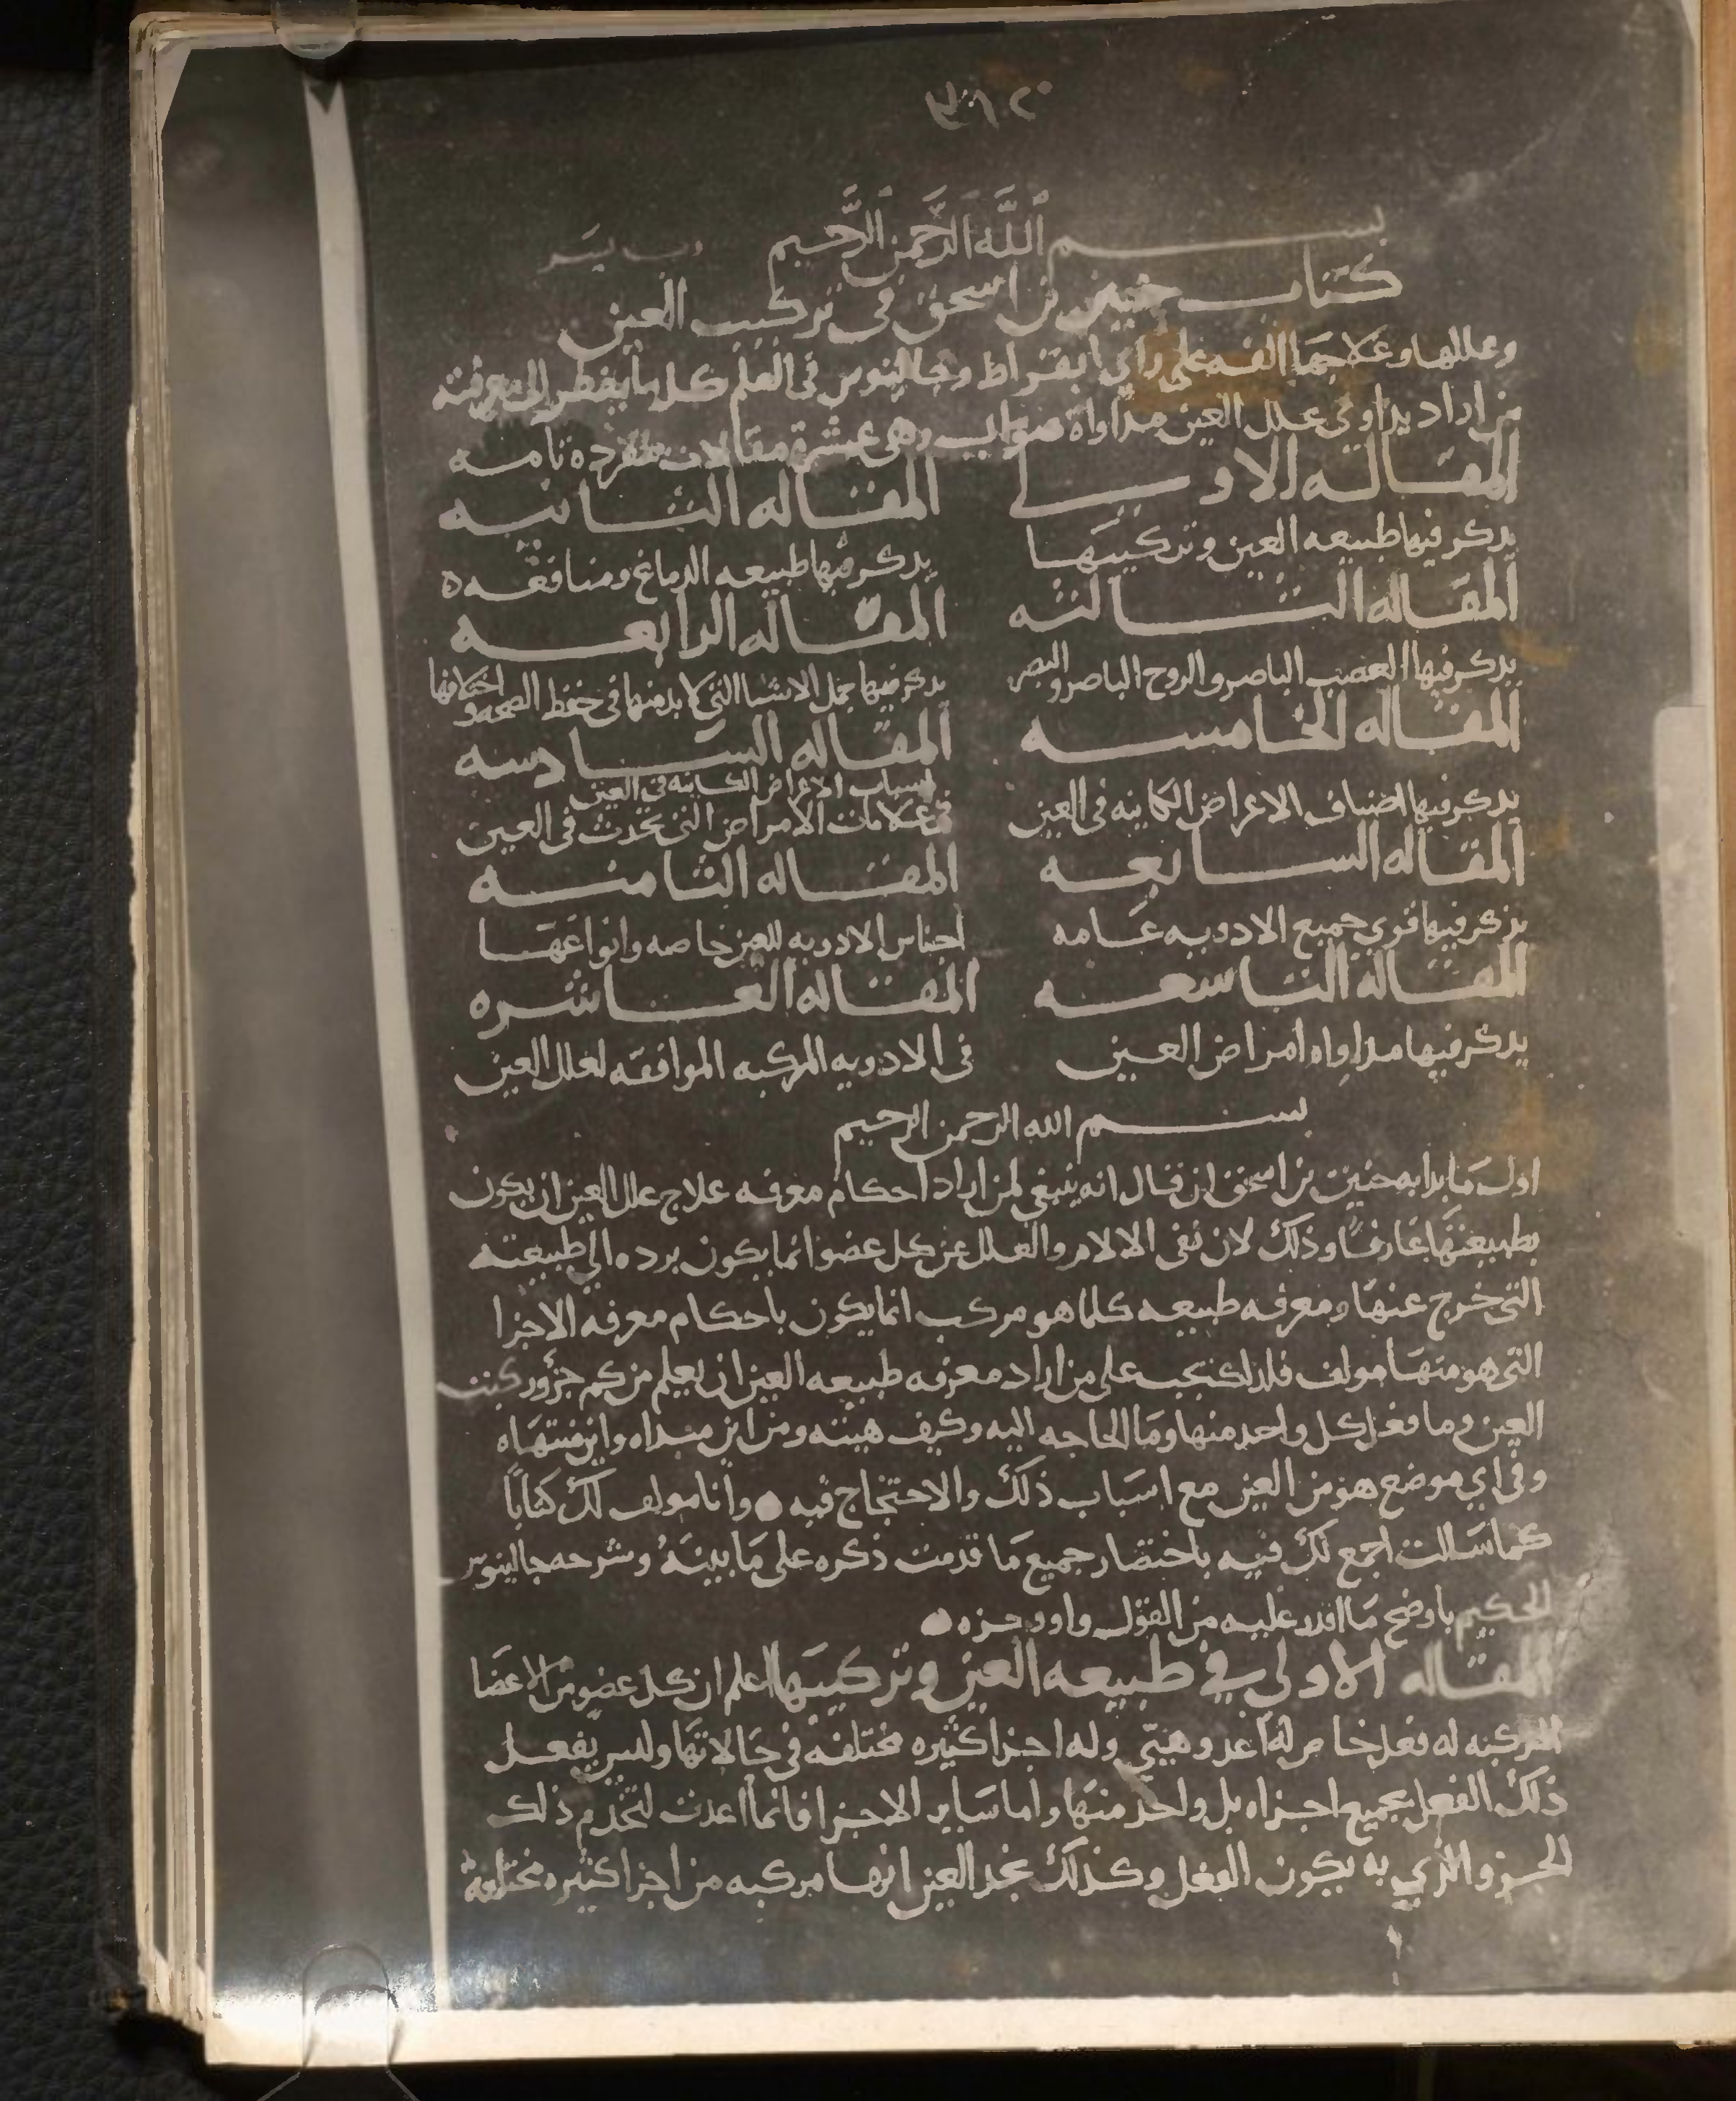 بسم الله الرحمن الرحيم رب يسر
كتاب حنين بن اسحق في تركيب العين
وعللها وعلاجها الفه على راي ابقراط وجالينوس في العلم كلما يضطر الى معرفته
من اراد يداوي علل العين مداواة صواب وهي عشرة مقالات مفرده تامه
المقاله الاولى المقاله الثانيه
يدكر فيها طبيعه العين وتركيبها يدكر فيها طبيعه الدماغ ومنافعه ه
المقاله الثالثه المقاله الرابعه
يدكر فيها العصب الباصر والروح الباصر والبصر يدكر فيها جمل الاشيا التي لا بد منها في حفظ الصحه واختلافها
المقاله الخامسه المقاله السادسه
اسباب الاعراض الكاينه في العين
يدكر فيها اصناف الاعراض الكاينه في العين في علامات الامراض التي تحدث في العين
المقاله السابعه المقاله الثامنه
يذكر فيها قوي جميع الادويه عامه اجناس الادويه للعين خاصه وانواعها
المقاله التاسعه المقاله العاشره
يدكر فيها مداواه امراض العين في الادويه المركبه الموافقه لعلل العين
بسم الله الرحمن الرحيم
اول ما بدا به حنين بن اسحق ان قال انه ينبغي لمن اراد احكام معرفه علاج علل العين ان يكون
بطبيعتها عارفا وذلك لان نفي الالام والعلل عن كل عضو انما يكون برده الي طبيعته
التي خرج عنها ومعرفه طبيعه كلما هو مركب انما يكون باحكام معرفه الاجزا
التي هو منها مولف فلذلك يجب على من اراد معرفه طبيعه العين ان يعلم من كم جزؤ ركبت
العين وما فعل كل واحد منها وما الحاجه اليه وكيف هيئته ومن اين مبداه واين منتهاه
وفي اي موضع هو من العين مع اسباب ذلك والاحتجاج فيه • وانا مولف لك كتابا
كما سالت اجمع لك فيه باختصار جميع ما قدمت ذكره على ما بينه وشرحه جالينوس
الحكيم باوضح ما اقدر عليه من القول واوجزه •
المقاله الاولى في طبيعه العين وتركيبها اعلم ان كل عضو من الاعضا
المركبه له فعل خاص له اعد وهيي وله اجزا كثيره مختلفه في حالاتها وليس يفعل
ذلك الفعل بجميع اجزاه بل واحد منها واما ساير الاجزا فانما اعدت لتخدم ذلك
الجزو الذي به يكون الفعل وكذلك نجد العين انها مركبه من اجزا كثيره مختلفه